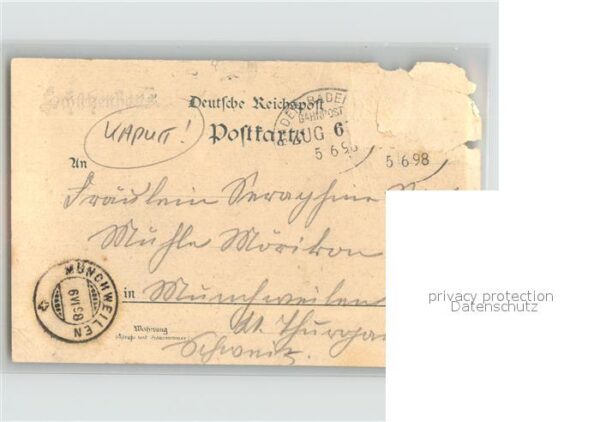 Schützenhaus.
Deutsche Reichspost
Postkarte
KAPUTT!
BADEN-BADEN
BAHNPOST
ZUG 6
5 6 98
5 6 98
An
Fräulein Seraphine
Mühle Mörikon
in Münchweilen
Kt. Thurgau
Schweiz.
Wohnung
(Straße und Hausnummer)
MÜNCHWEILEN
6 VI 98
privacy protection
Datenschutz